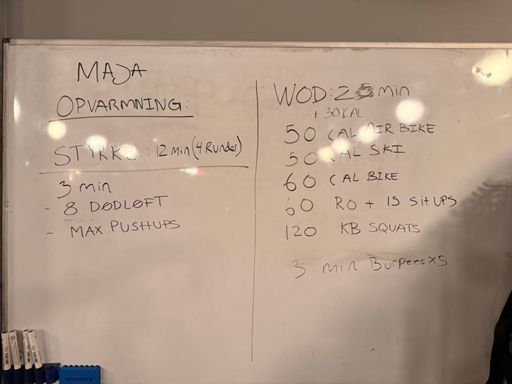 MAJA
OPVARMNING:
STYRKE: 12 min (4 Runder)
3 min
- 8 DØDLØFT
- MAX PUSHUPS
WOD: 25 min
+ 30 CAL
50 CAL AIR BIKE
50 CAL SKI
60 CAL BIKE
60 RO + 15 SitUPS
120 KB SQUATS
3 min Burpees x5